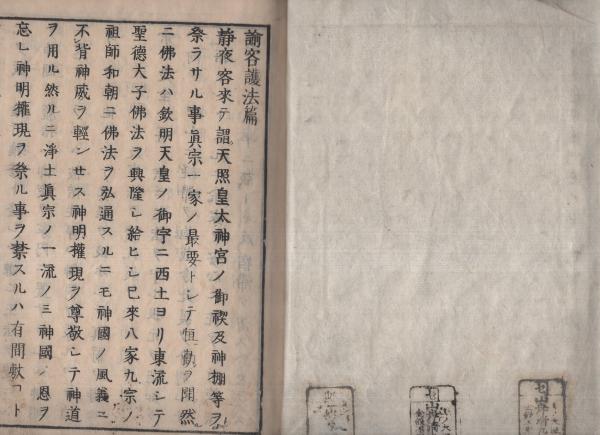 諭客護法篇
静夜客來テ謂天照皇太神宮ノ御禊及神棚等ヲ
祭ラサル事眞宗一家ノ最要トシテ恒勸ヲ聞然
ニ佛法ハ欽明天皇ノ御宇ニ西土ヨリ東流シテ
聖德大子佛法ヲ興隆シ給ヒシ已來八家九宗ノ
祖師和朝ニ佛法ヲ弘通スルニモ神國ノ風義ニ
不背神威ヲ輕ンセス神明權現ヲ尊敬シテ神道
ヲ用ル然ルニ淨土眞宗ノ一流ノミ神國ノ恩ヲ
忘レ神明權現ヲ祭ル事ヲ禁スルハ有間敷コト